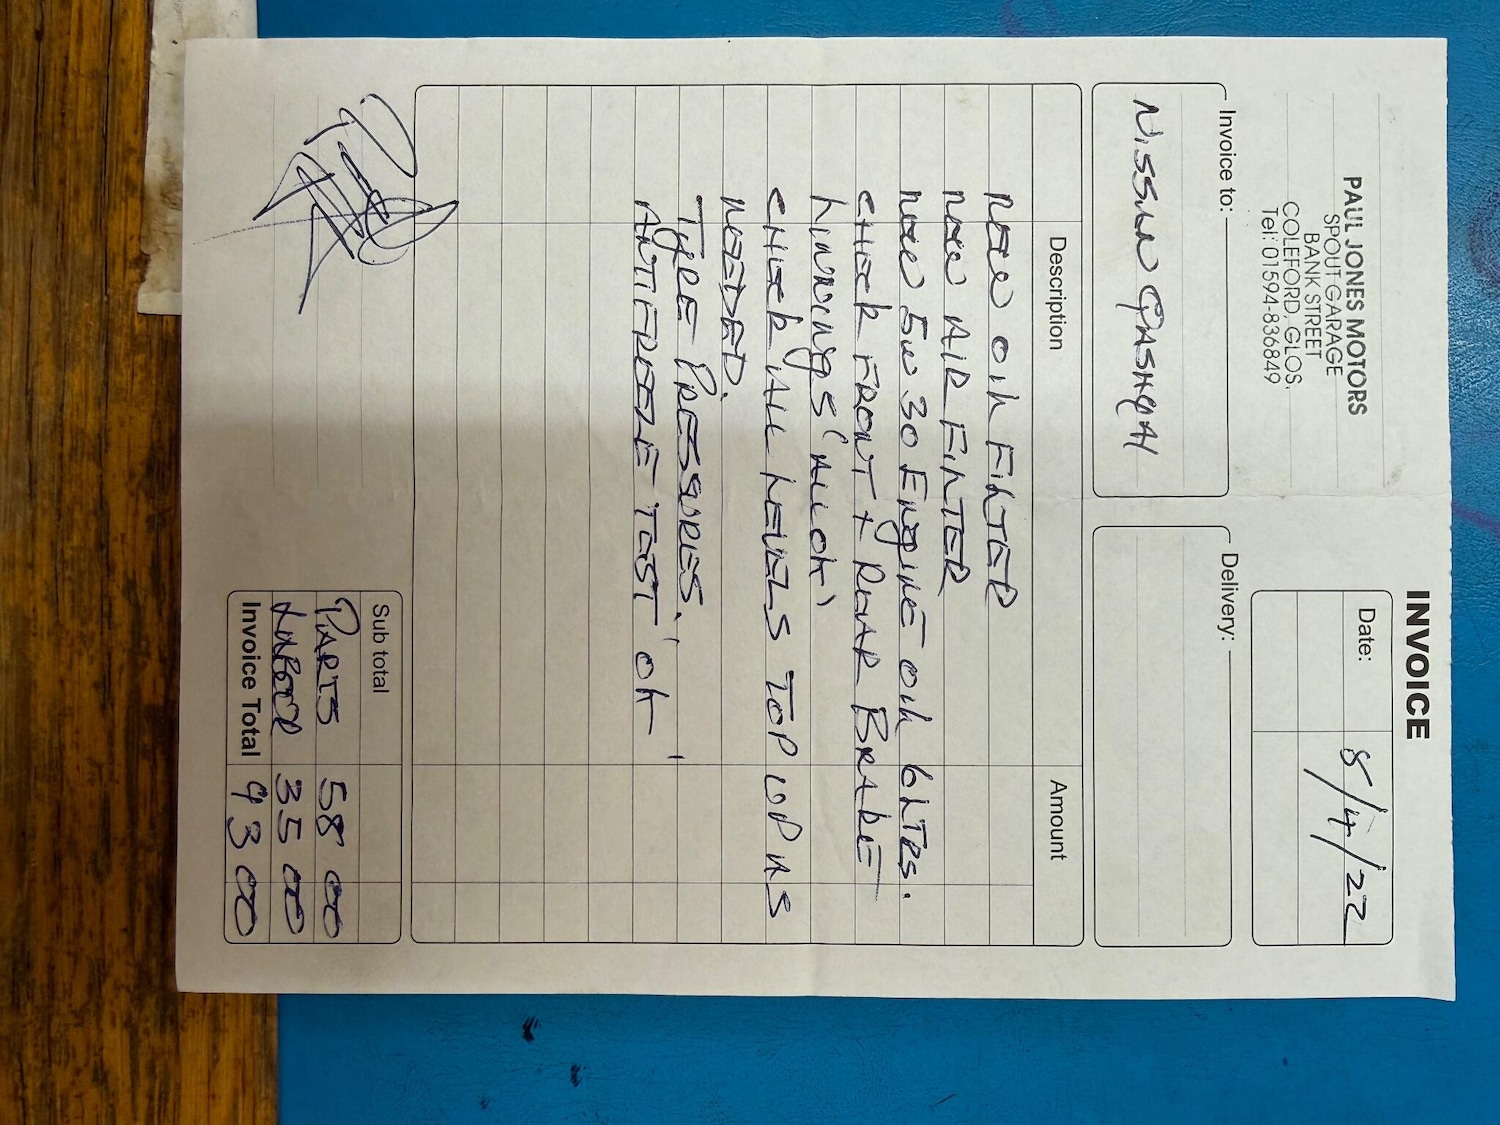 INVOICE
PAUL JONES MOTORS
SPOUT GARAGE
BANK STREET
COLEFORD, GLOS,
Tel: 01594-836849
Date: 8/4/22
Invoice to:
NiSSAN QASHQAI
Delivery:
Description Amount
NEW OIL FILTER
NEW AIR FILTER
NEW 5W 30 ENgINE OIL 6LTRS.
CHECK FRONT + REAR BRAKE
LININgS 'ALL OK'
CHECK ALL LEVELS TOP UP AS
NEEDED.
TyRE PRESSURES.
ANTIFREEZE TEST 'OK'
Sub total
PARTS 58 00
LABOUR 35 00
Invoice Total 93 00